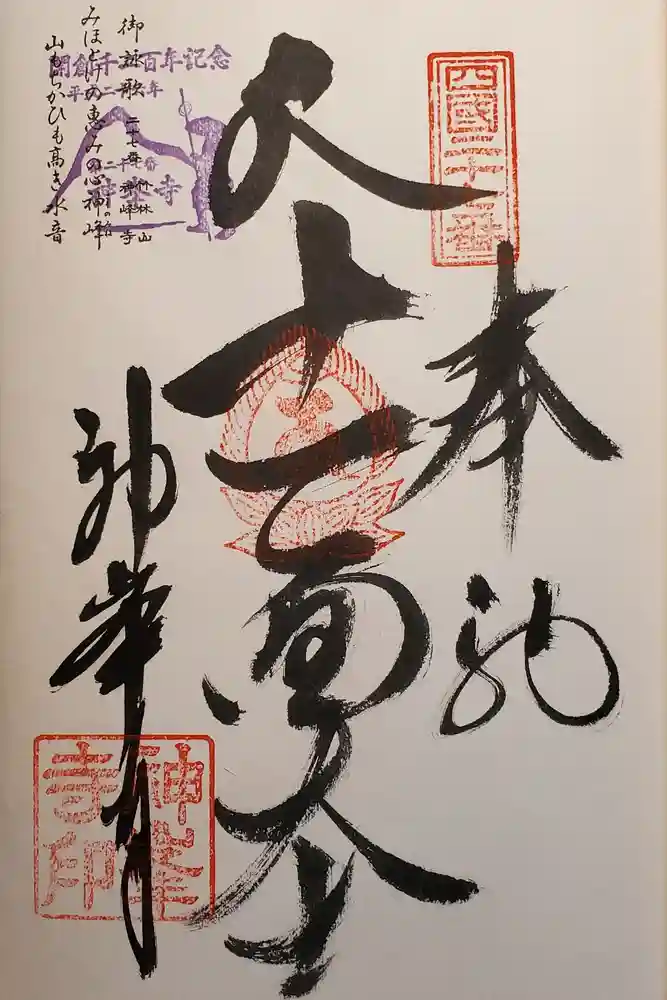 四國二十七番
奉納
十一面大士
神峯寺
神峯寺印
御詠歌 二十七番 竹林山
神峰寺
みほとけの恵みの心神峰
山もちかひも高き水音
開創千二百年記念